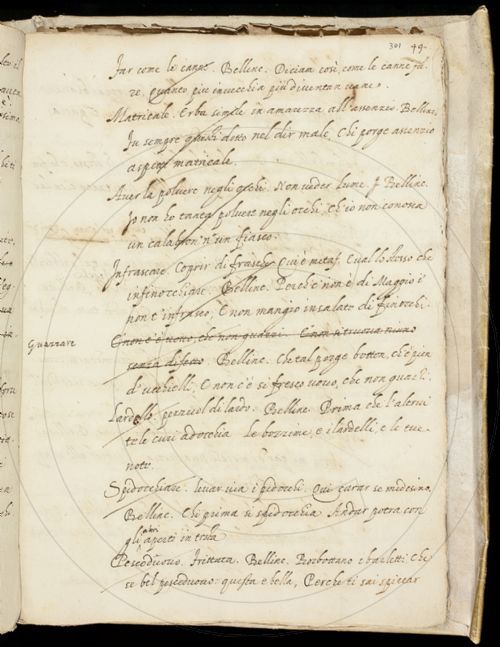 301 49.
Far come le canne. Belline. Diciam così, come le canne fa-
te, quanto piu invecchia più diventan vane.
Matricale. Erba simile in amarezza all'assenzio. Belline.
Fu sempre dotto nel dir male, Chi porge assenzio
aspetti matricale.
Aver la polvere negli occhi. Non veder lume. Belline.
Io non ho tanta polvere negli occhi, ch'io non conosca
un calasson n'un fiasco.
Infrascare. Coprir di frasche. Qui è metaf. E val lo stesso che
infinocchiare. Belline. Perch'e' non è di Maggio i'
non t'infrasco, E non mangio insalata di finocchi.
Guazzare
E non c'è uovo, che non guazzi. E non si truova niuno
senza difetto. Belline. Che tal porge botton, ch'è pien
d'ucchielli, E non c'è sì fresco uovo, che non guazzi.
Lardello. pezzuol di lardo. Belline. Prima che l'alcrui
tele cusi adocchia Le bozzime, e i lardelli, e le tue
note.
Spidocchiare. levar via i pidocchi. Qui curar se medesimo.
Belline. Chi prima si spidocchia Andar potrà con
gli altri aperti in tresca
Pesceduovo. Frittata. Belline. Borbottano i barletti: Che
se bel pesceduovo: questa è bella, Perche ti sai spiccar